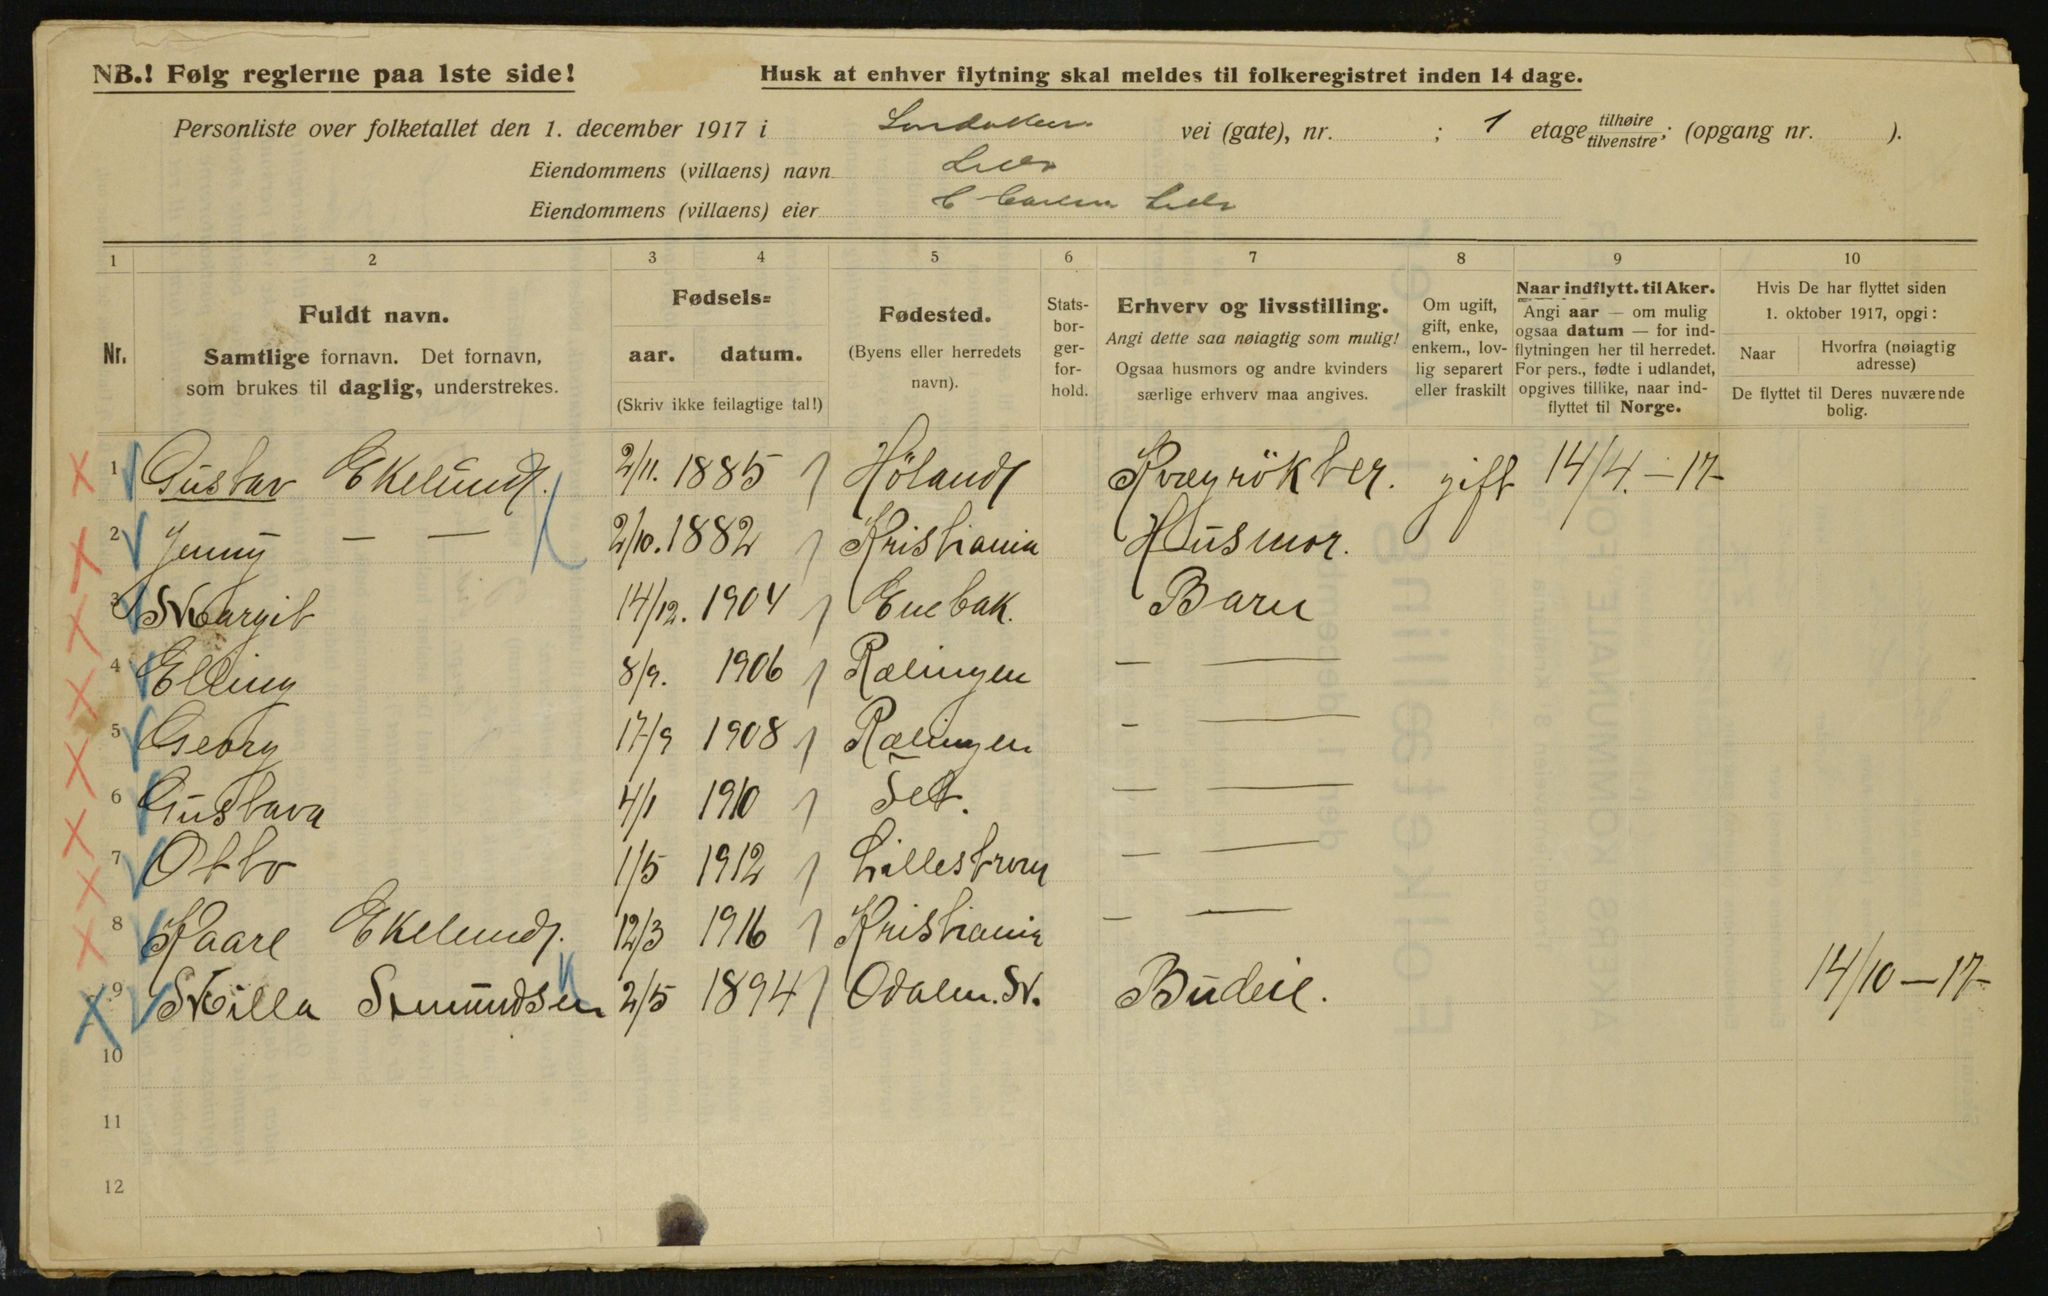 NB.! Følg reglerne paa 1ste side!
Husk at enhver flytning skal meldes til folkeregistret inden 14 dage.
Personliste over folketallet den 1. december 1917 i vei (gate), nr. ; 1 etage tilhøire tilvenstre; (opgang nr. ).
Eiendommens (villaens) navn
Eiendommens (villaens) eier
1 2 3 4 5 6 7 8 9 10
Nr.
Fuldt navn.
Samtlige fornavn. Det fornavn,
som brukes til daglig, understrekes.
Fødsels=
aar. datum.
(Skriv ikke feilagtige tal!)
Fødested.
(Byens eller herredets
navn).
Stats-
bor-
ger-
for-
hold.
Erhverv og livsstilling.
Angi dette saa nøiagtig som mulig!
Ogsaa husmors og andre kvinders
særlige erhverv maa angives.
Om ugift,
gift, enke,
enkem., lov-
lig separert
eller fraskilt
Naar indflytt. til Aker.
Angi aar — om mulig
ogsaa datum — for ind-
flytningen her til herredet.
For pers., fødte i udlandet,
opgives tillike, naar ind-
flyttet til Norge.
Hvis De har flyttet siden
1. oktober 1917, opgi:
Naar
Hvorfra (nøiagtig
adresse)
De flyttet til Deres nuværende
bolig.
1 Gustav Ekelund. 2/11. 1885 Höland Kvægrökter. gift 14/4. - 17-
2 Jenny — — 2/10. 1882 Kristiania Husmor.
3 Margit 14/12. 1904 Enebak. Barn
4 Elling 8/9. 1906 Rælingen — —
5 Georg 17/9 1908 Rælingen - —
6 Gustava 4/1 1910 — —
7 Otto 1/5 1912 Lillestrøm — —
8 Kaare Ekelund. 12/3 1916 Kristiania — —
9 Milla 2/5 1894 Odalen. N. Budeie. 14/10 — 17-
10
11
12